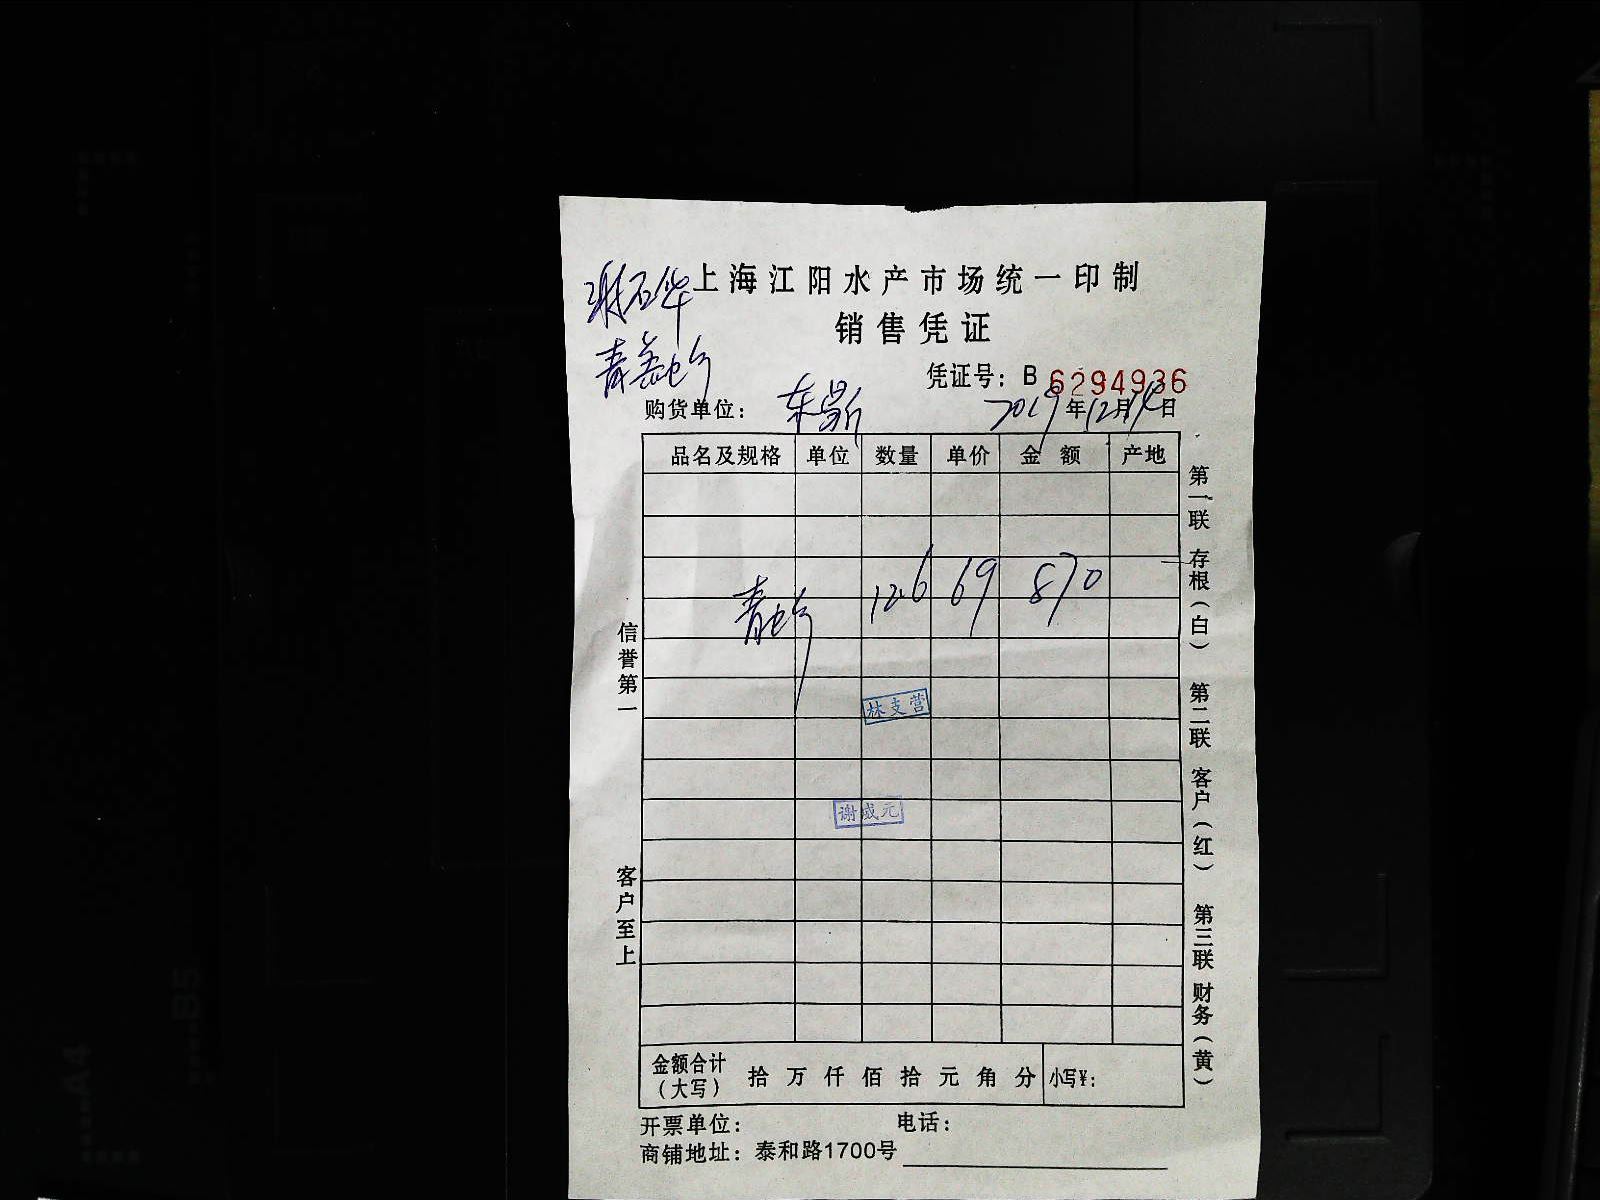 上海江阳水产市场统一印制
谢石华
销售凭证
凭证号：B 6294936
购货单位：东昂 2019年12月14日
品名及规格 单位 数量 单价 金额 产地
青 12.6 69 870
林支营
谢成元
金额合计（大写） 拾 万 仟 佰 拾 元 角 分 小写¥：
开票单位： 电话：
商铺地址：泰和路1700号
信誉第一
客户至上
第一联 存根（白） 第二联 客户（红） 第三联 财务（黄）
A4
B5